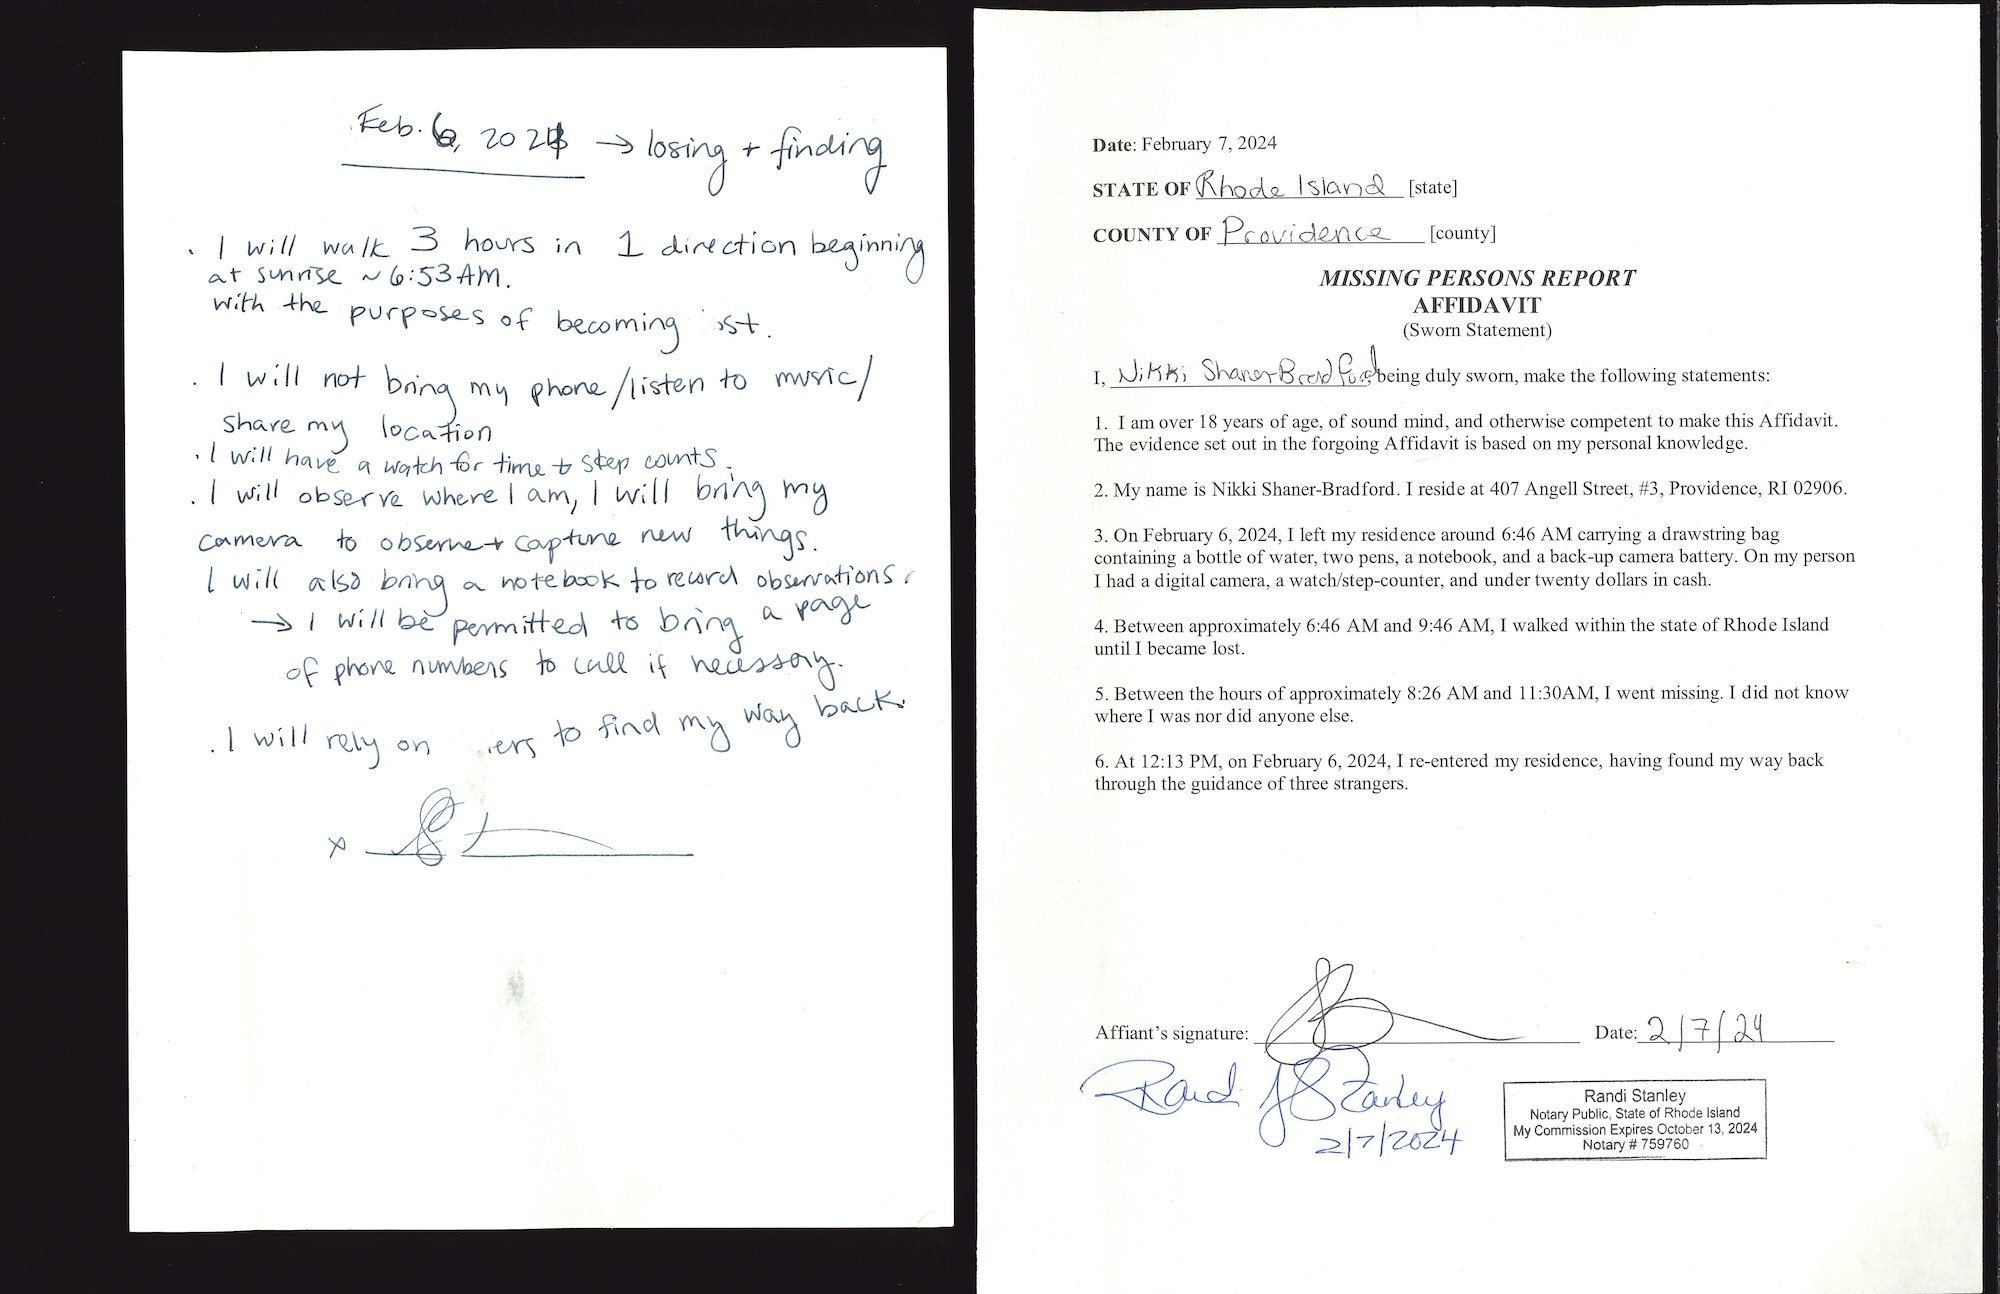 Feb. 6, 2024 → losing + finding
. I will walk 3 hours in 1 direction beginning
at sunrise ~ 6:53 AM.
with the purposes of becoming st.
. I will not bring my phone/listen to music/
share my location
. I will have a watch for time + step counts.
. I will observe where I am, I will bring my
camera to observe + capture new things.
I will also bring a notebook to record observations.
→ I will be permitted to bring a page
of phone numbers to call if necessary.
. I will rely on ers to find my way back.
x
Date: February 7, 2024
STATE OF Rhode Island [state]
COUNTY OF Providence [county]
MISSING PERSONS REPORT
AFFIDAVIT
(Sworn Statement)
I, Nikki Shaner-Bradford, being duly sworn, make the following statements:
1. I am over 18 years of age, of sound mind, and otherwise competent to make this Affidavit.
The evidence set out in the forgoing Affidavit is based on my personal knowledge.
2. My name is Nikki Shaner-Bradford. I reside at 407 Angell Street, #3, Providence, RI 02906.
3. On February 6, 2024, I left my residence around 6:46 AM carrying a drawstring bag
containing a bottle of water, two pens, a notebook, and a back-up camera battery. On my person
I had a digital camera, a watch/step-counter, and under twenty dollars in cash.
4. Between approximately 6:46 AM and 9:46 AM, I walked within the state of Rhode Island
until I became lost.
5. Between the hours of approximately 8:26 AM and 11:30AM, I went missing. I did not know
where I was nor did anyone else.
6. At 12:13 PM, on February 6, 2024, I re-entered my residence, having found my way back
through the guidance of three strangers.
Affiant's signature: Date: 2/7/24
Randi Stanley
2/7/2024
Randi Stanley
Notary Public, State of Rhode Island
My Commission Expires October 13, 2024
Notary # 759760